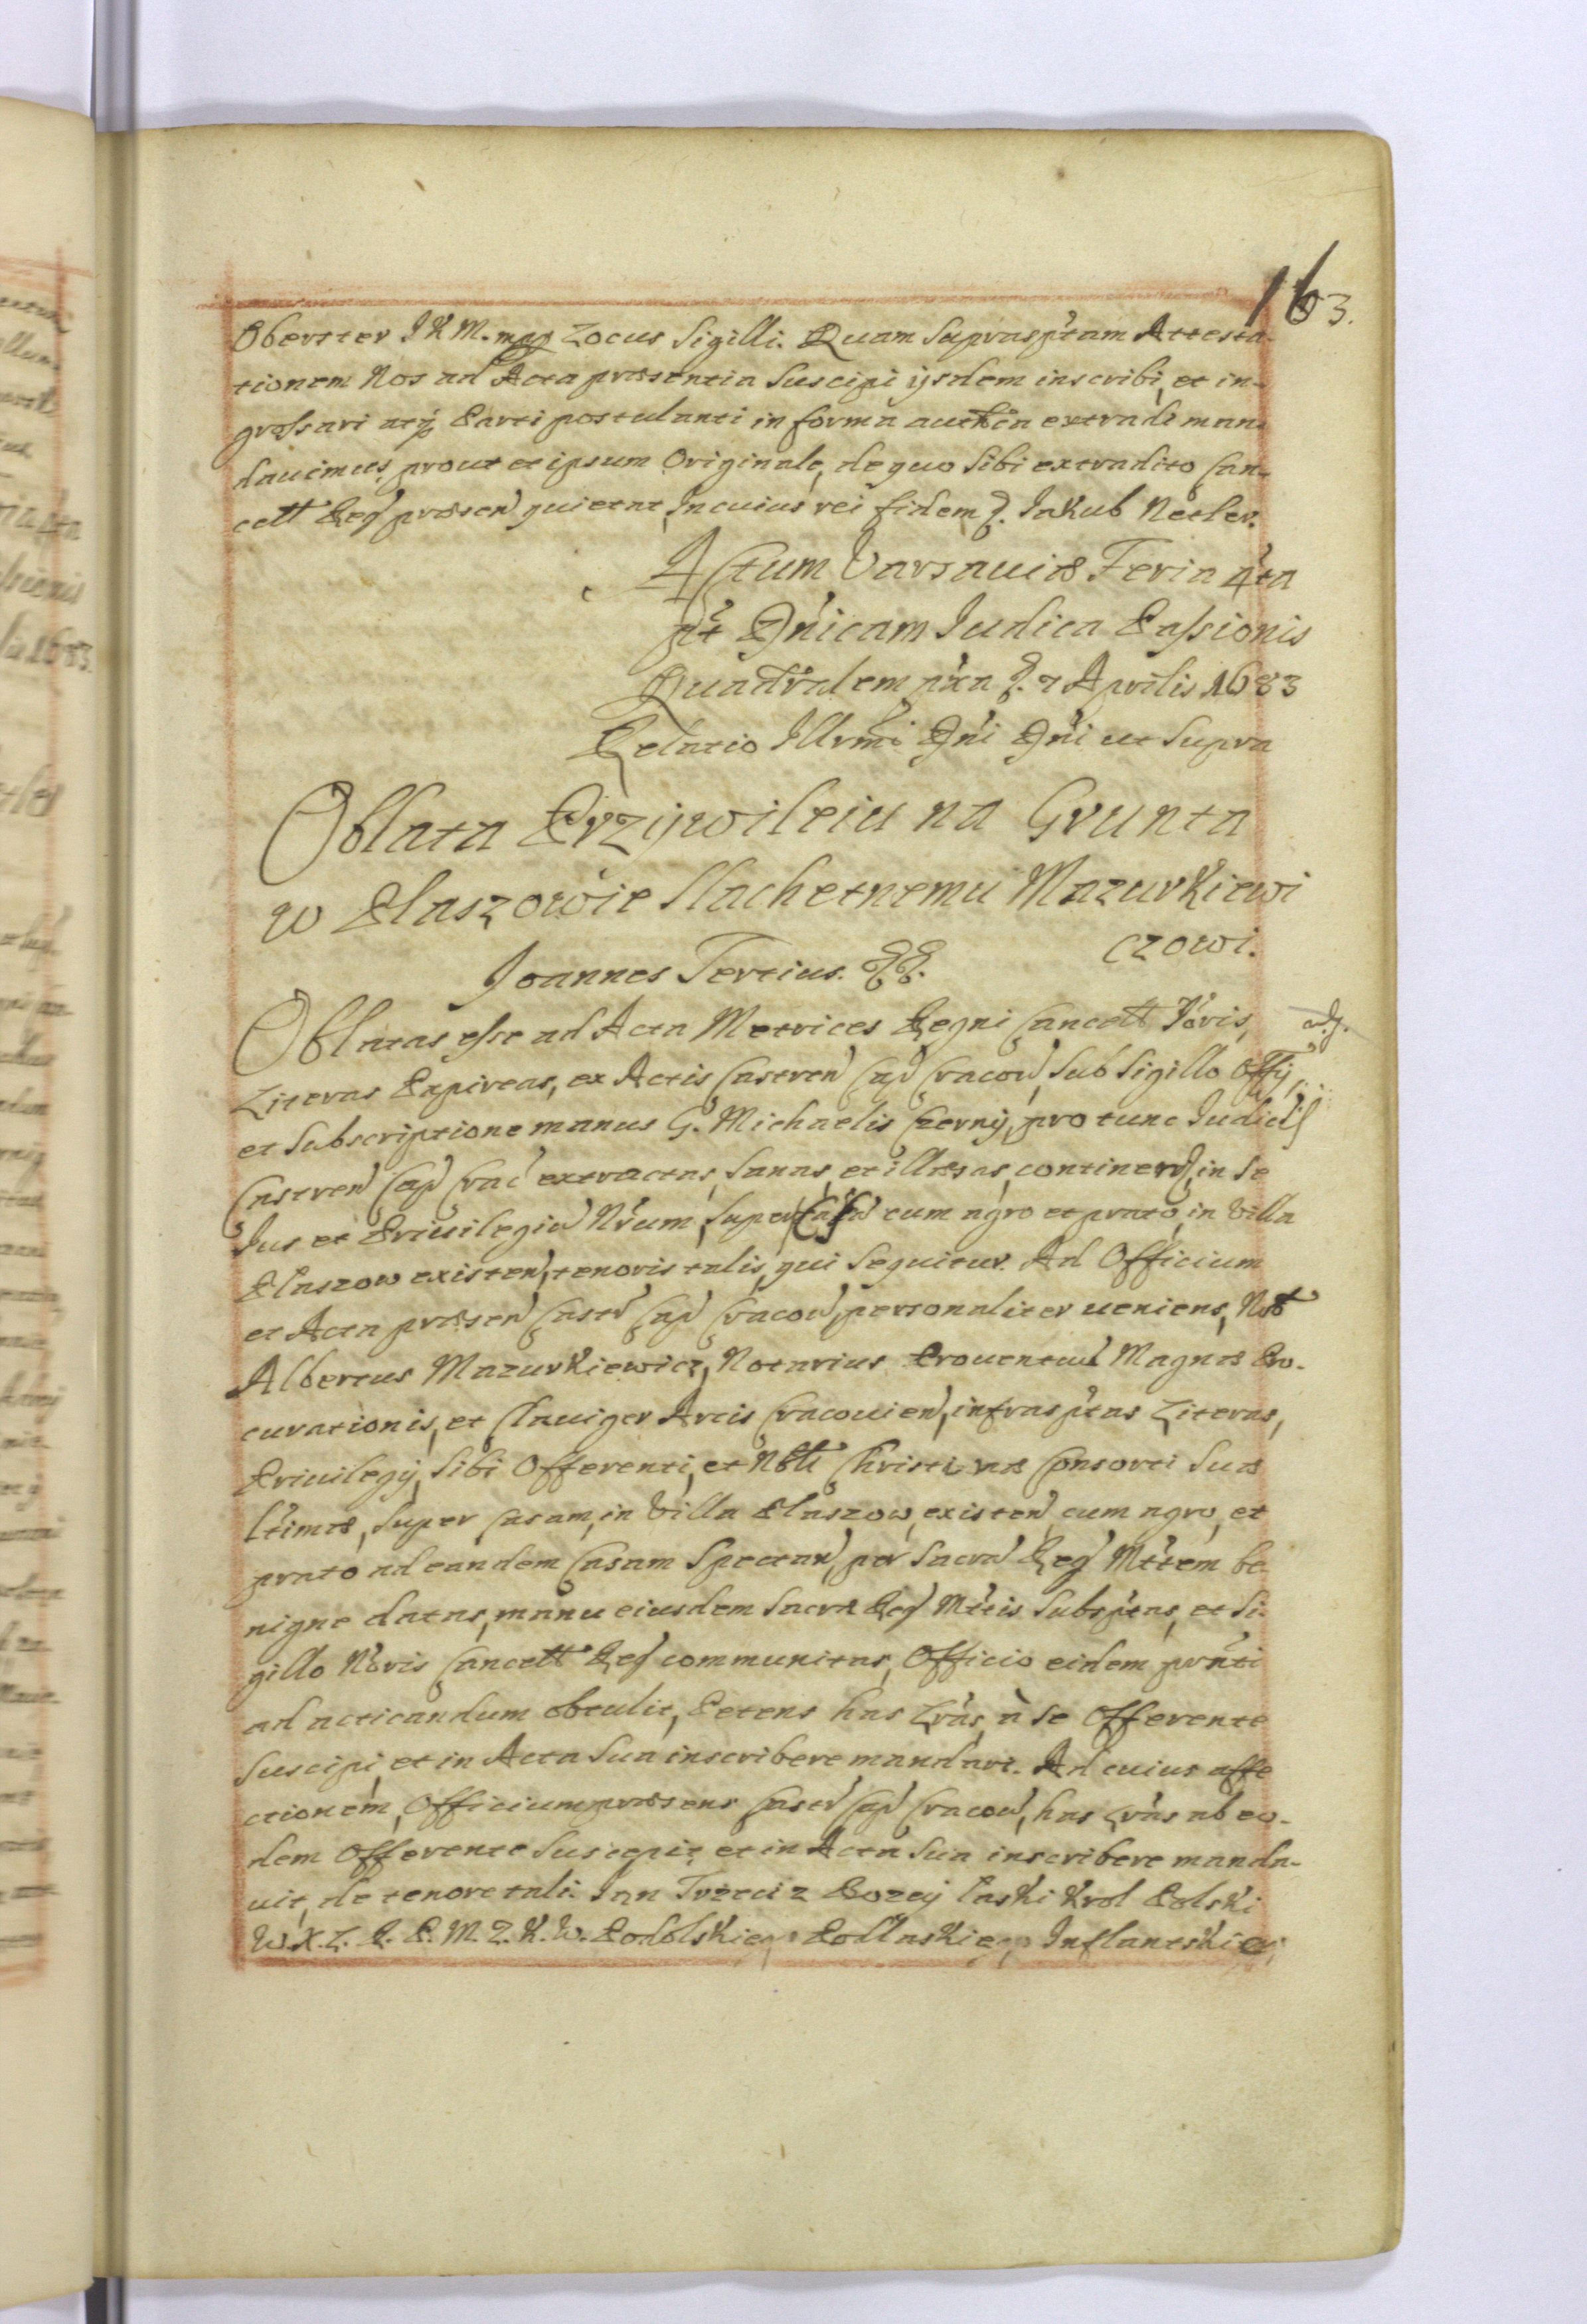 163.
Oberster J K M. mpp Locus Sigilli. Quam Suprasptam Attesta-
tionem Nos ad Acta præsentia Suscipi ijsdem inscribi, et in-
grossari atq Parti postulanti in forma authen extradi man-
dauimus, prout et ipsum Originale, de quo Sibi extradito Can-
cell Reg præsen quietat, In cuius rei fidem &. Jakub Netler.
Actum Varsauiæ Feria 4ta
pt Dnicam Iudica Passionis
Quadralem pxa &. 7 Aprilis 1683
Relatio Illrmi Dni Dni ut Supra
Oblata Przywileiu na Grunta
w Płaszowie Slachetnemu Mazurkiewi
czowi.
Joannes Tertius. &&.
Oblatas esse ad Acta Metrices Regni Cancell Noris,
Literas Papireas, ex Actis Castren Cap Cracou, Sub Sigillo Offij,
et Subscriptione manus G. Michaelis Czerny, pro tunc Iudicis
Castren Cap Crac extractas, Sanas, et illæsas, continen in Se
Ius et Priuilegiu Nrum, Super Casa cum agro et prato, in Villa
Płaszow existen, tenoris talis, qui Sequitur. Ad Officium
et Acta præsen Castr Cap Cracou, personaliter ueniens, Nob
Albertus Mazurkiewicz, Notarius Prouentuu Magnæ Pro-
curationis, et Clauiger Arcis Cracouien, infrasptas Literas,
Priuilegij, Sibi Offerenti, et Nobli Christinæ Consorti Suæ
Ltimæ, Super Casam, in Villa Płaszow, existen, cum agro, et
prato ad eandem Casam Spectan, per Sacra Reg Mttem be-
nigne datas, manu eiusdem Sacræ Reg Mttis Subsptas, et Si-
gillo Noris Cancell Reg communitas, Officio eidem prnti
ad acticandum obtulit, Petens has Lras, à Se Offerente
Suscipi, et in Acta Sua inscribere mandari. Ad cuius affe
ctionem, Officium præsens Castr Cap Cracou, has Lras ab eo-
dem Offerente Suscepit, et in Acta Sua inscribere manda-
uit, de tenore tali. Jan Trzeci z Bozey łaski Krol Polski
W. X. L. R. P. M. Z. K. W. Podolskie Podlaskie Inflantskie